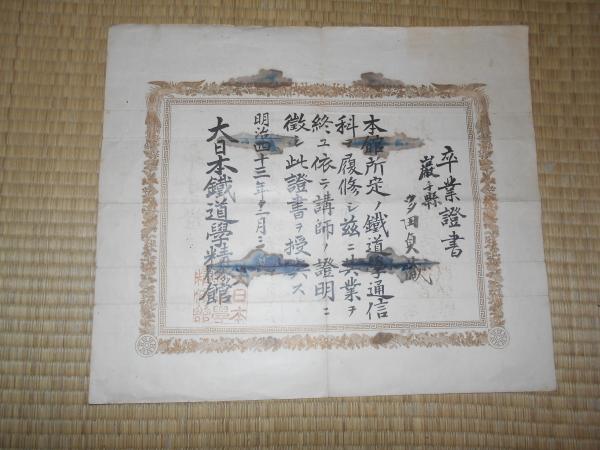 卒業證書
巖手縣
多田貞藏
本館所定ノ鐵道學通信
科ヲ履修シ茲ニ其業ヲ
終ユ依テ講師ノ證明ニ
徴シ此證書ヲ授與ス
明治四十三年三月三
大日本鐵道學精修館